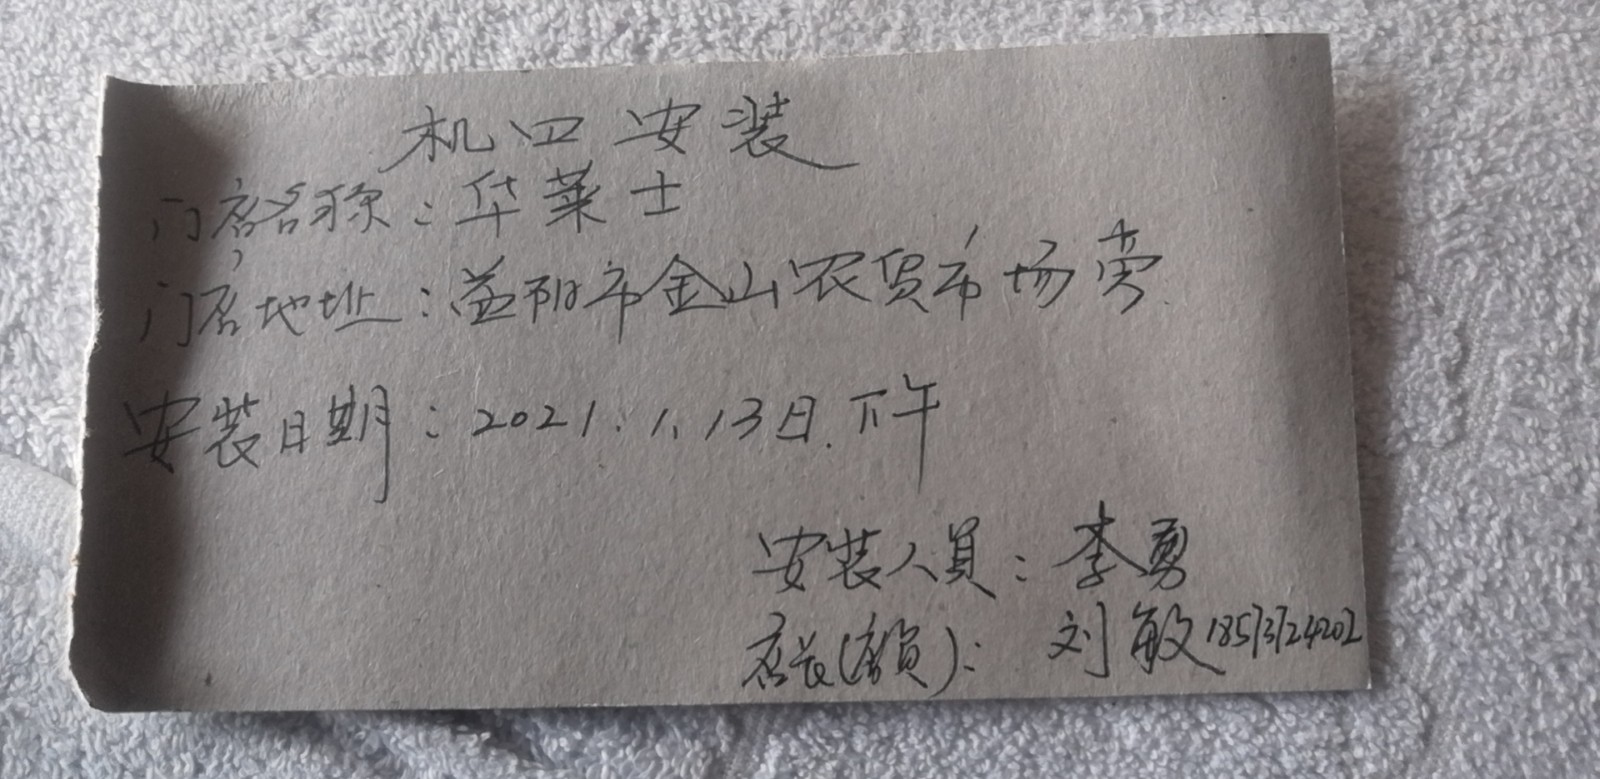 机四安装
门店名称:华莱士
门店地址:益阳市金山农贸市场旁
安装日期:2021.1.13日.下午
安装人员:李勇
店长(店员):刘敏